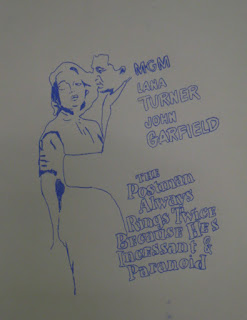 MGM
LANA
TURNER
JOHN
GARFIELD
THE
Postman
Always
Rings Twice
Because He's
Incessant &
Paranoid